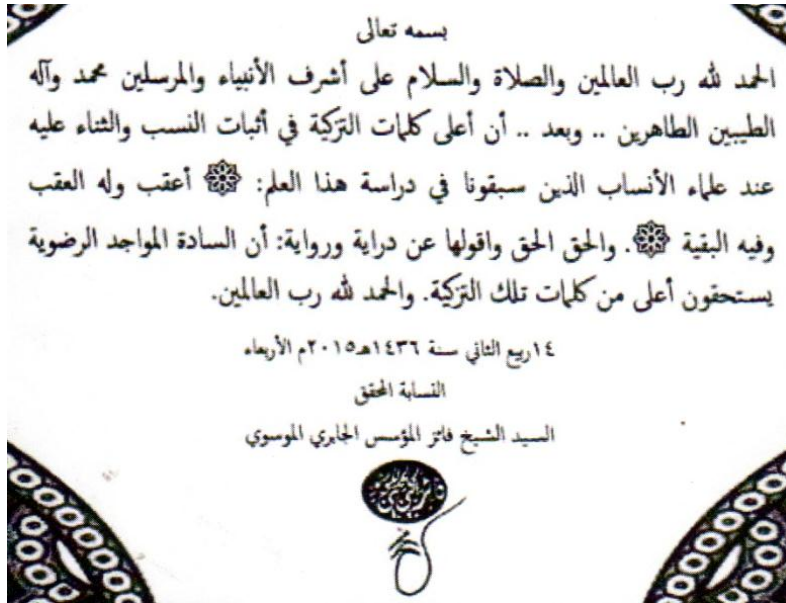 بسمه تعالى
الحمد لله رب العالمين والصلاة والسلام على أشرف الأنبياء والمرسلين محمد وآله
الطيبين الطاهرين .. وبعد .. أن أعلى كلمات التزكية في أثبات النسب والثناء عليه
عند علماء الأنساب الذين سبقونا في دراسة هذا العلم: أعقب وله العقب
وفيه البقية . والحق الحق واقولها عن دراية ورواية: أن السادة المواجد الرضوية
يستحقون أعلى من كلمات تلك التزكية. والحمد لله رب العالمين.
١٤ ربيع الثاني سنة ١٤٣٦هـ٢٠١٥م الأربعاء
النسابة المحقق
السيد الشيخ فائز المؤسس الجابري الموسوي